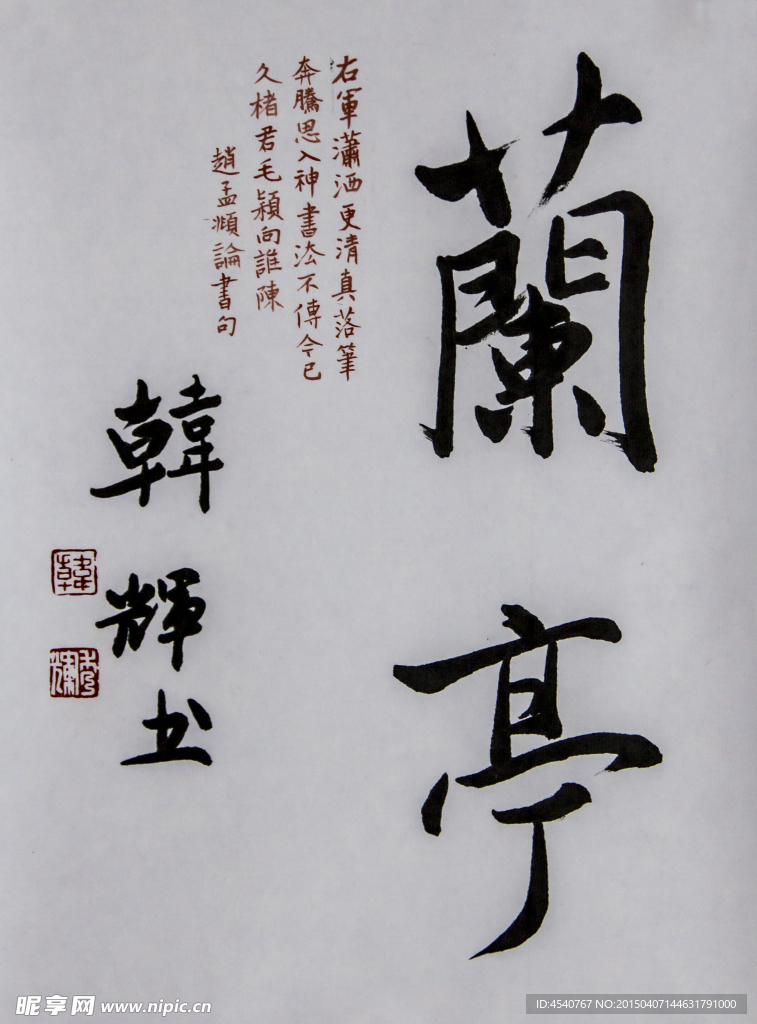 蘭亭
右軍瀟洒更清真落筆
奔騰思入神書法不傳今已
久楮君毛穎向誰陳
趙孟頫論書句
韓輝书
韓
昵享网 www.nipic.cn
ID:4540767 NO:20150407144631791000